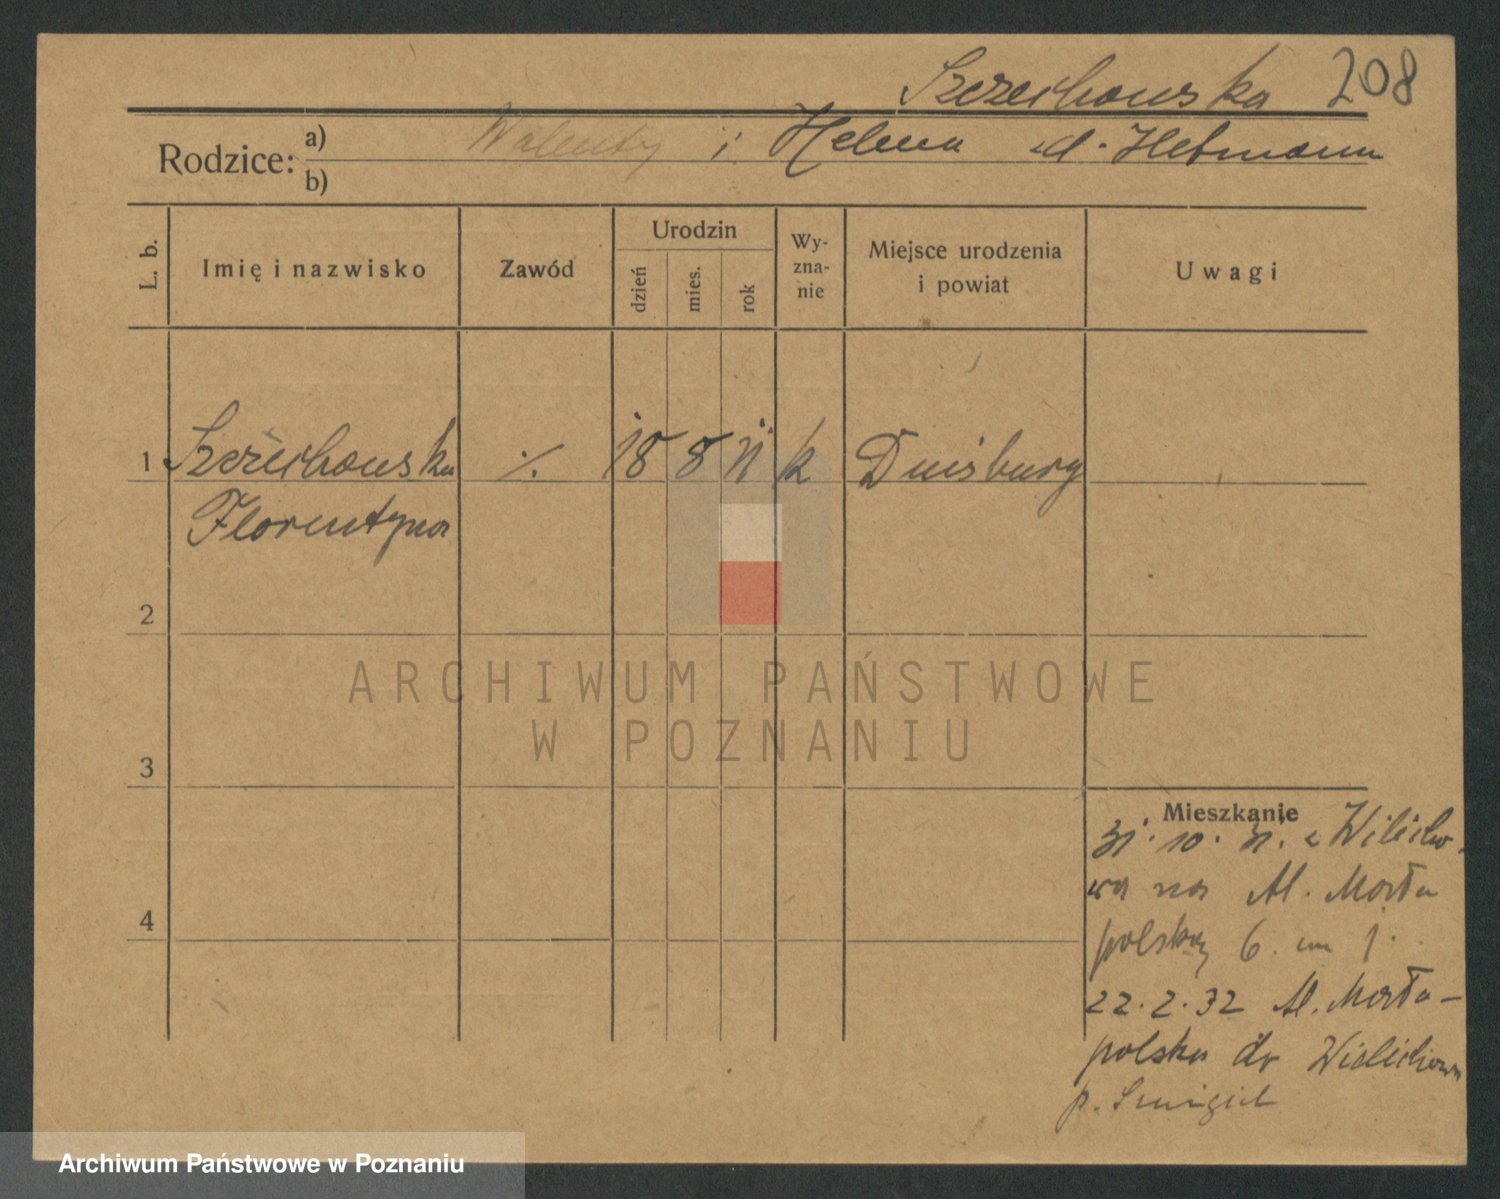 Szczechowska 208
Rodzice: a) Walenty i Helena d. Hetmann
b)
L. b. Imię i nazwisko Zawód Urodzin dzień mies. rok Wy-zna-nie Miejsce urodzenia i powiat Uwagi
1 Szczechowska ·/. 18 8 11 k Duisburg
Florentyna
2
3
4
Mieszkanie
31. 10. 31. z Wielicho-
wa na Al. Mało
polską 6. m 1.
22.2.32 Al. Mało-
polska do Wielichowa
p. Śmigiel
ARCHIWUM PAŃSTWOWE
W POZNANIU
Archiwum Państwowe w Poznaniu